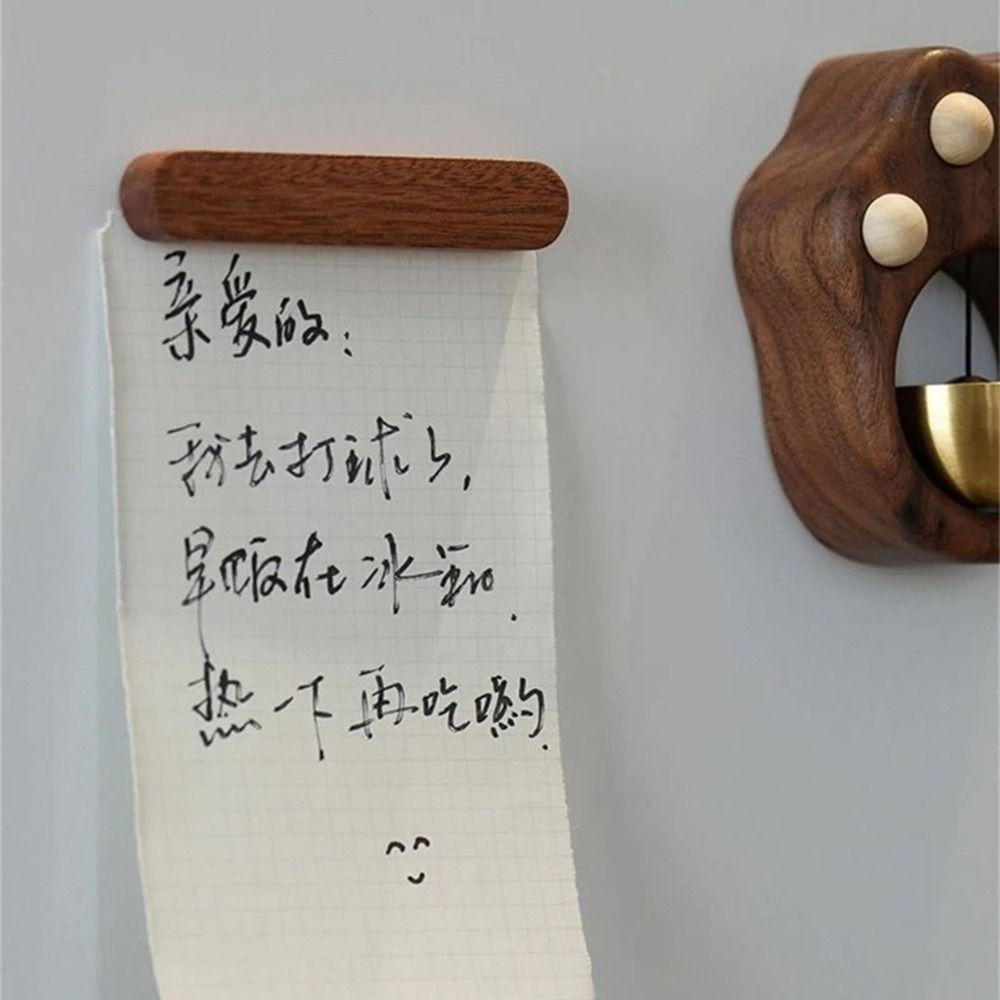 亲爱的：
我去打球了,
早饭在冰箱.
热一下再吃哟.